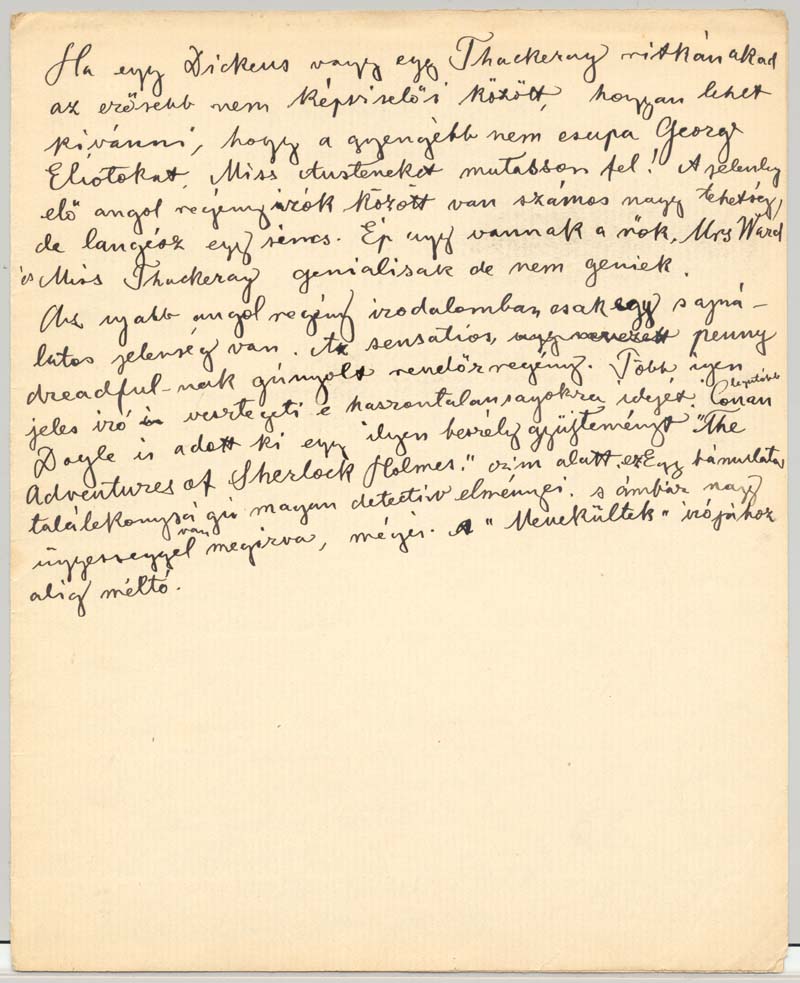 Ha egy Dickens vagy egy Thackeray ritkán akad
az erősebb nem képviselői között, hogyan lehet
kivánni, hogy a gyengébb nem csupa George
Eliotokat, Miss Austeneket mutasson fel! A jelenleg
élő angol regényirók között van számos nagy tehetség,
de langész egy sincs. Ép ugy vannak a nők, Mrs Ward
és Miss Thackeray genialisak de nem geniek.
Az ujabb angol regény irodalomban csak egy sajná-
latos jelenség van. Az sensatiós, ugy nevezett penny
dreadful-nak gúnyolt rendőrregény. Több igen
jeles iró is vesztegeti e haszontalanságokra idejét. legutóbb Conan
Doyle is adott ki egy ilyen beszély gyüjteményt "The
Adventures of Sherlock Holmes." czim alatt, ez Egy bámulatos
találékonyságú magán detectiv élményei, s ámbár nagy
ügyességgel van megirva, mégis A "Menekültek" irójához
alig méltó.